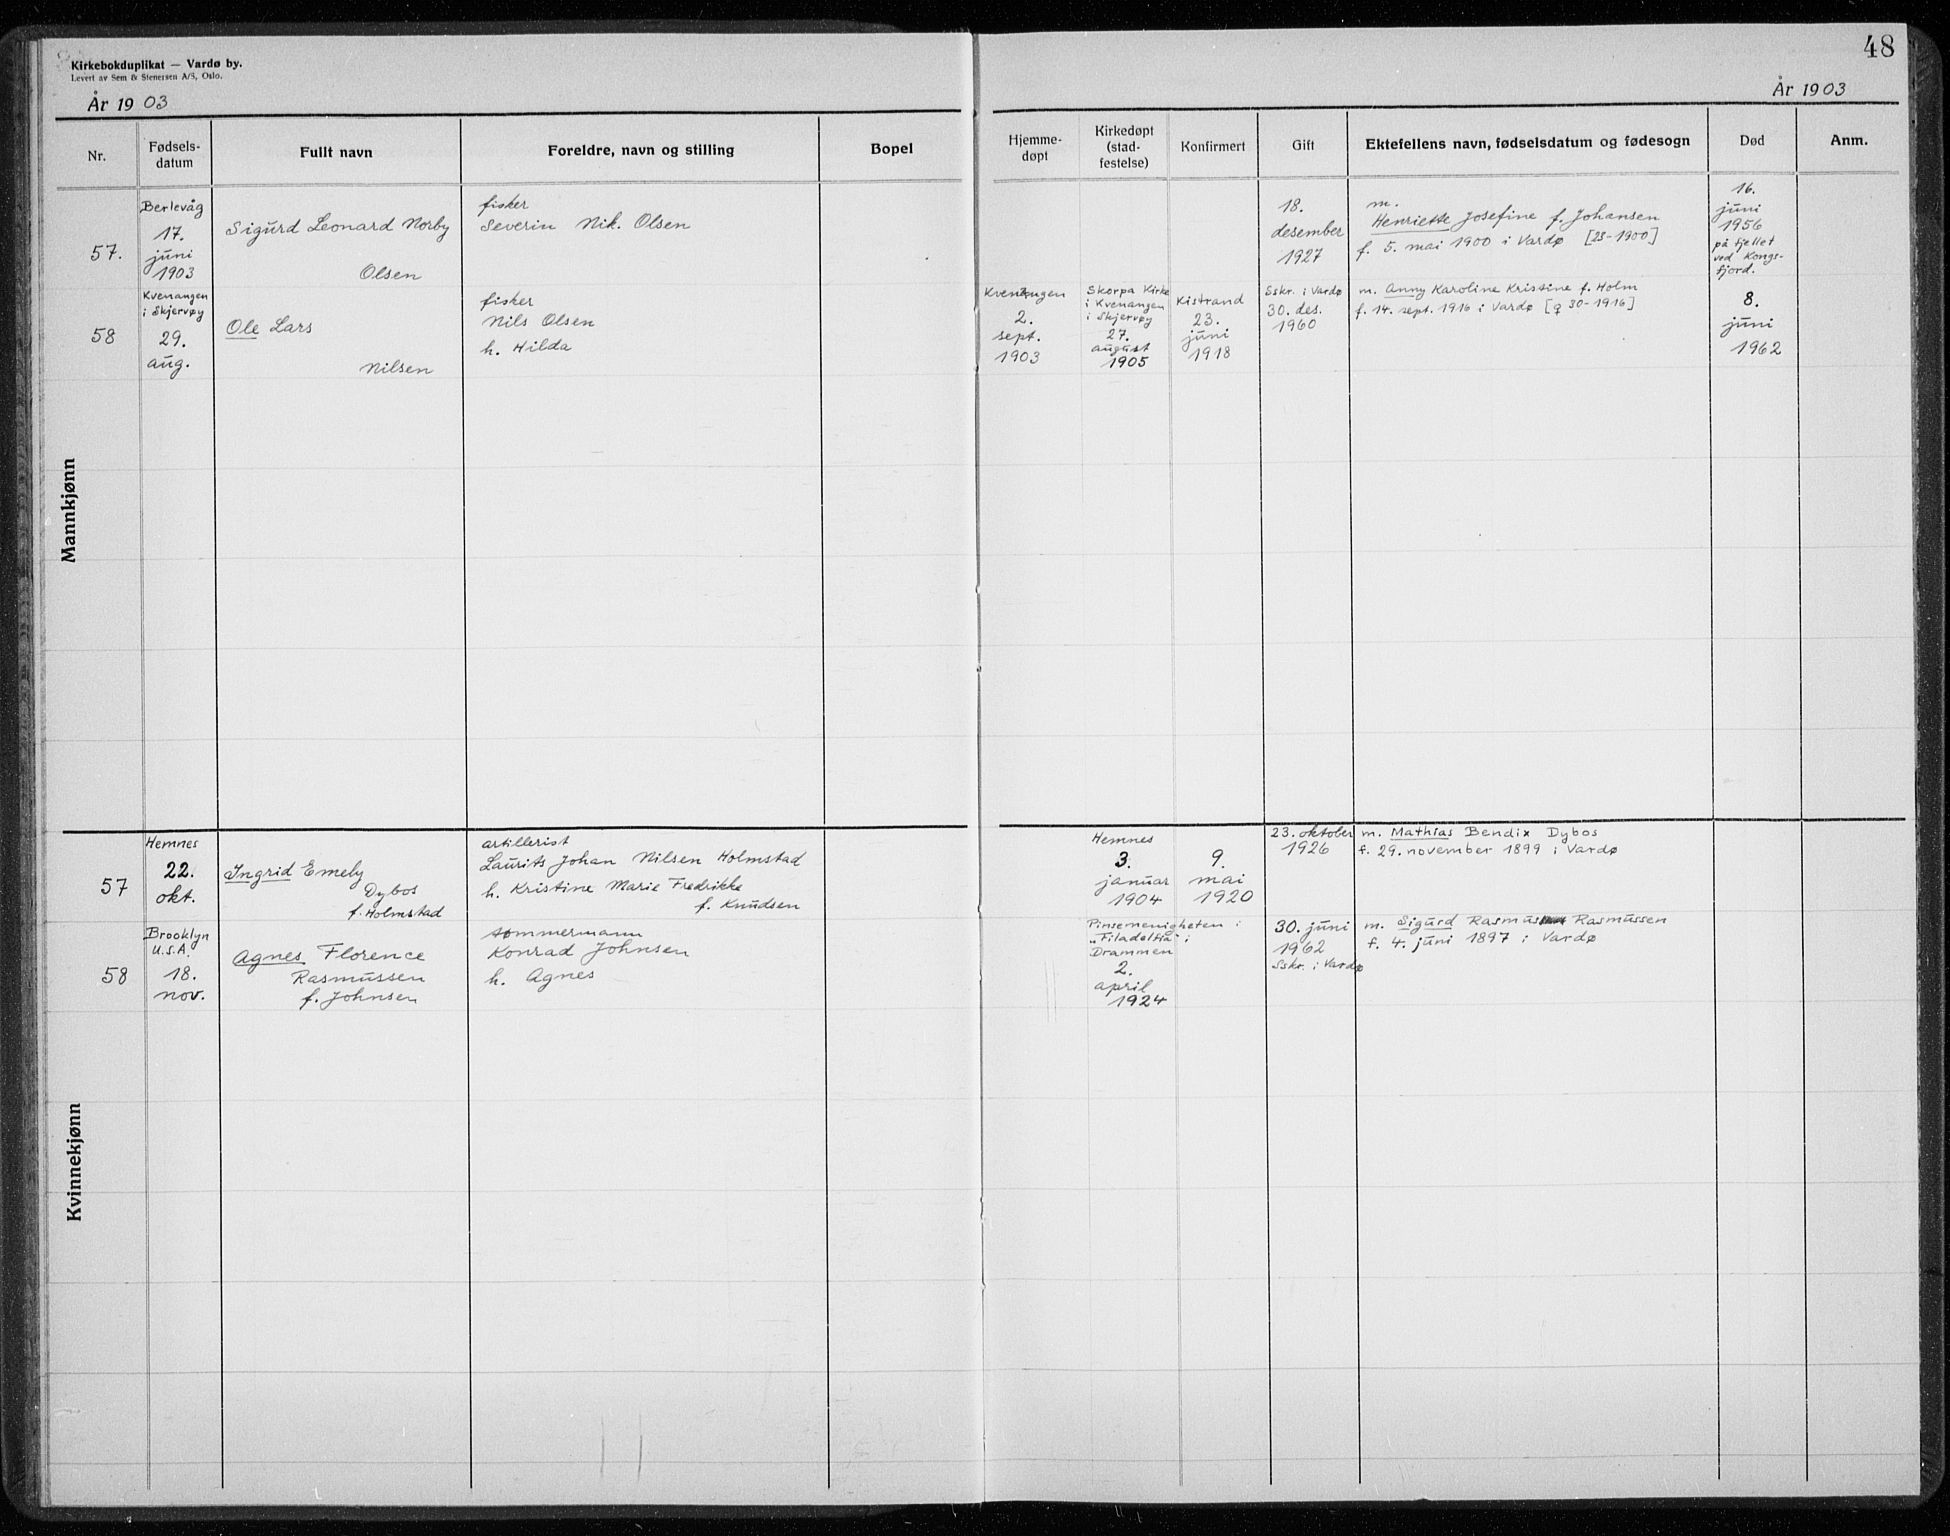 Kirkebokduplikat — Vardø by.
Levert av Sem & Stenersen A/S, Oslo.
År 1903
Nr.
Fødsels-
datum
Fullt navn
Foreldre, navn og stilling
Bopel
Mannkjønn
57.
Berlevåg
17.
juni
1903
Sigurd Leonard Norby
Olsen
fisker
Severin Nik. Olsen
58
Kvenangen
i Skjervøy
29.
aug.
Ole Lars
Nilsen
fisker
Nils Olsen
h. Hilda
Kvinnekjønn
57
Hemnes
22.
okt.
Ingrid Emely
Dybos
f. Holmstad
artillerist
Laurits Johan Nilsen Holmstad
h. Kristine Marie Fredrikke
f. Knudsen
58
Brooklyn
U.S.A.
18.
nov.
Agnes Florence
Rasmussen
f. Johnsen
tømmermann
Konrad Johnsen
h. Agnes
48
År 1903
Hjemme-
døpt
Kirkedøpt
(stad-
festelse)
Konfirmert
Gift
Ektefellens navn, fødselsdatum og fødesogn
Død
Anm.
18.
desember
1927
m.
Henriette Josefine f. Johansen
f. 5. mai 1900 i Vardø [23-1900]
16.
juni
1956
på fjellet
ved Kongs-
fjord.
Kvenangen
2.
sept.
1903
Skorpa Kirke
i Kvenangen
i Skjervøy
27.
august
1905
Kistrand
23.
juni
1918
Sskr. i Vardø
30. des.
1960
m. Anny Karoline Kristine f. Holm
f. 14. sept. 1916 i Vardø [q 30-1916]
8.
juni
1962
Hemnes
3.
januar
1904
9.
mai
1920
23. oktober
1926
m. Mathias Bendix Dybos
f. 29. november 1899 i Vardø
Pinsemenigheten i
"Filadelfia" i
Drammen
2.
april
1924
30. juni
1962
Sskr. i Vardø
m. Sigurd Rasmus Rasmussen
f. 4. juni 1897 i Vardø